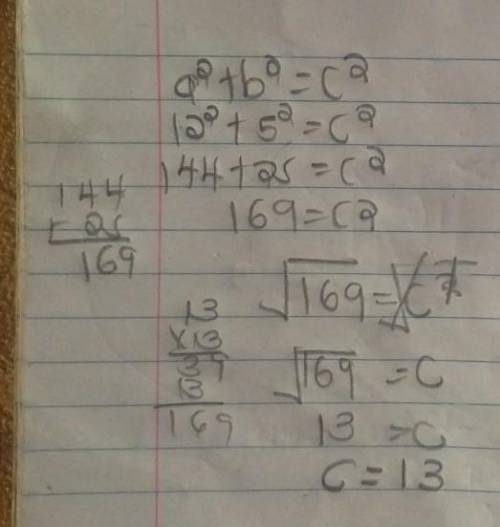 a²+b²=c²
12²+5²=c²
144+25=c²
169=c2
144
+25
169
√169=√c²
13
×13
39
13
169
√169=c
13=c
c=13